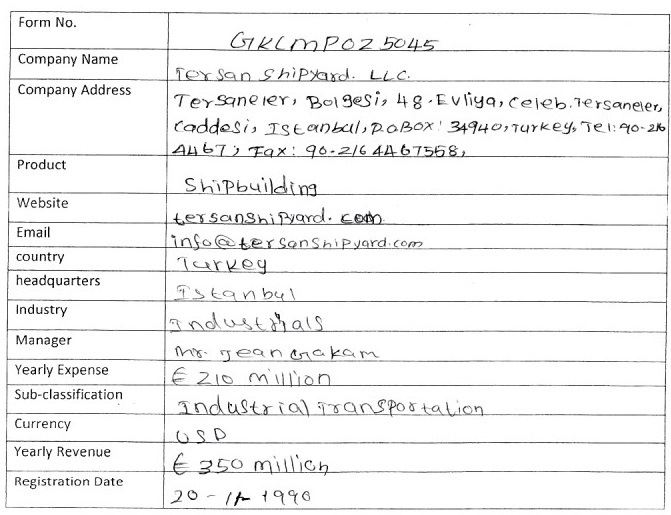 Form No.
GKLMPOZ5045
Company Name
Tersan Shipyard. LLC.
Company Address
Tersaneler, Bolgesi, 48. Evliya, Celeb. Tersaneler,
Caddesi, Istanbul, P.O BOX: 34940, Turkey, Tel: 90-216
4467, Fax: 90-216 4467558,
Product
Shipbuilding
Website
tersanshipyard.com
Email
info@tersanshipyard.com
country
Turkey
headquarters
Istanbul
Industry
Industrials
Manager
Mr. Jean Gakam
Yearly Expense
€ 210 million
Sub-classification
Industrial Transportation
Currency
USD
Yearly Revenue
€ 350 million
Registration Date
20-11-1990